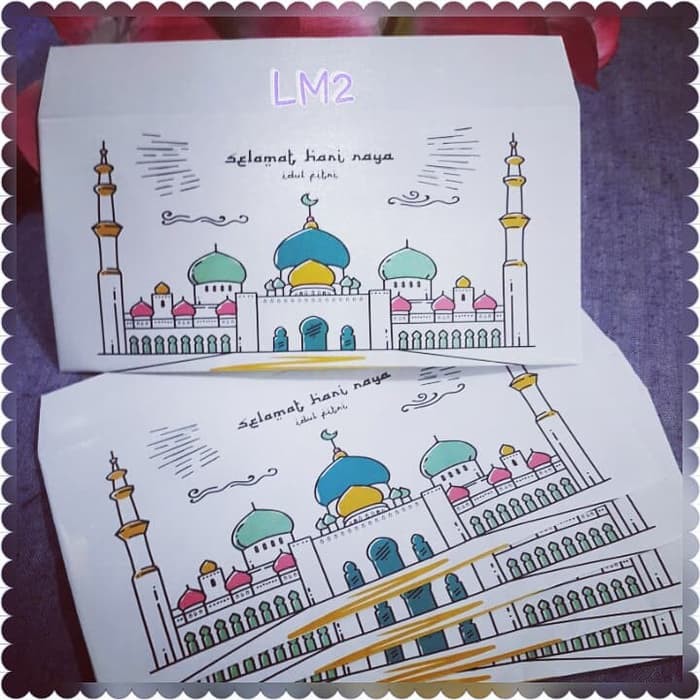 LM2
selamat hari raya
idul fitri
selamat hari raya
idul fitri